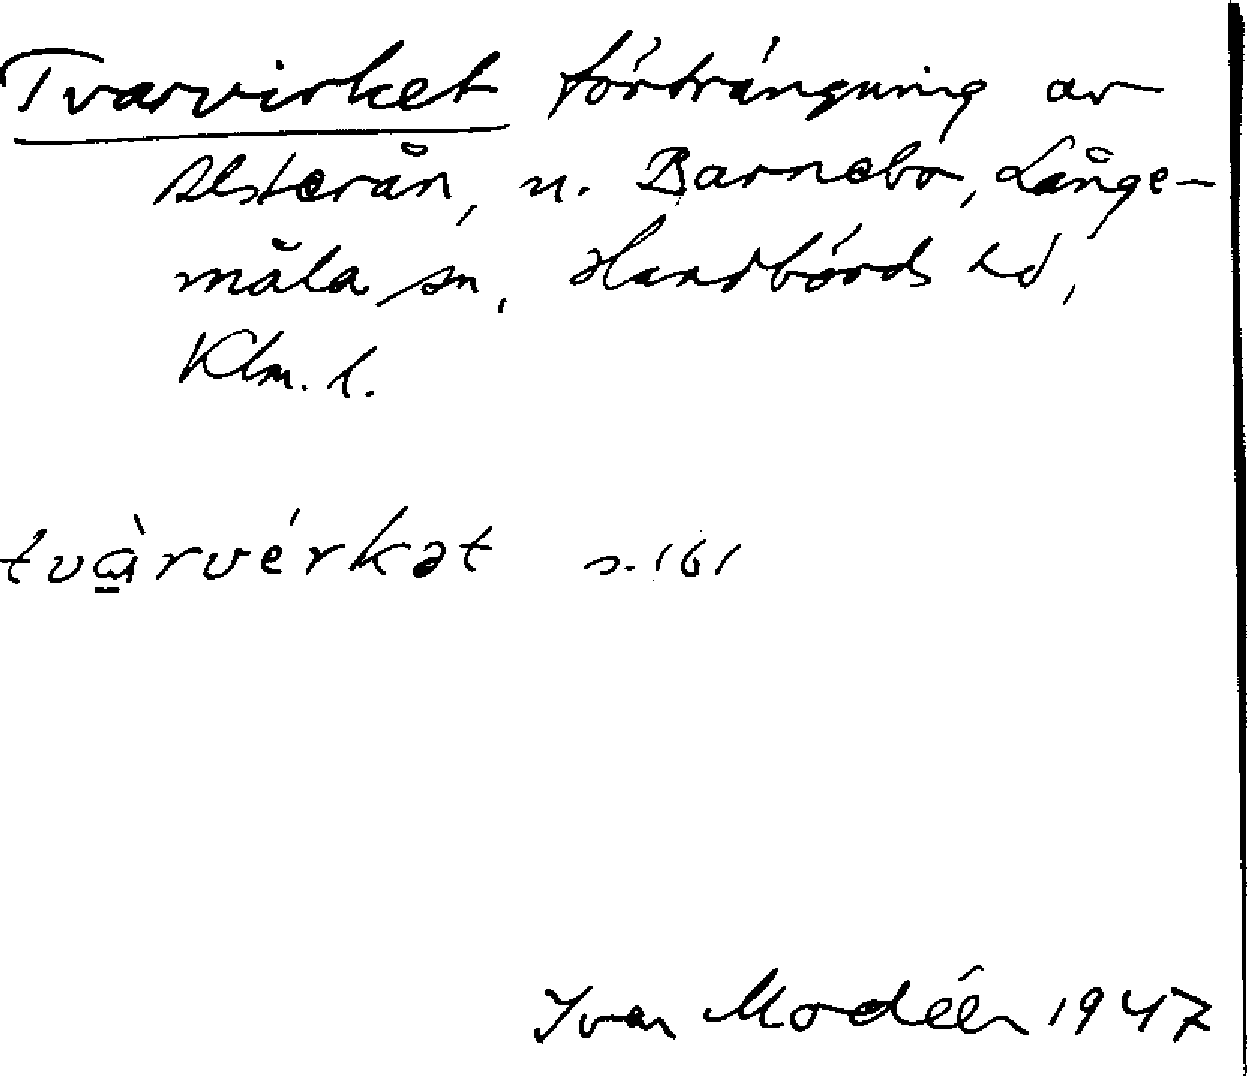 Tvarvirket förträngning av
Alsterån, n. Barnebo, Långe-
måla sn, Handbörds hd,
Klm. l.
tvàrvérkət s. 161
Ivar Modéer 1947